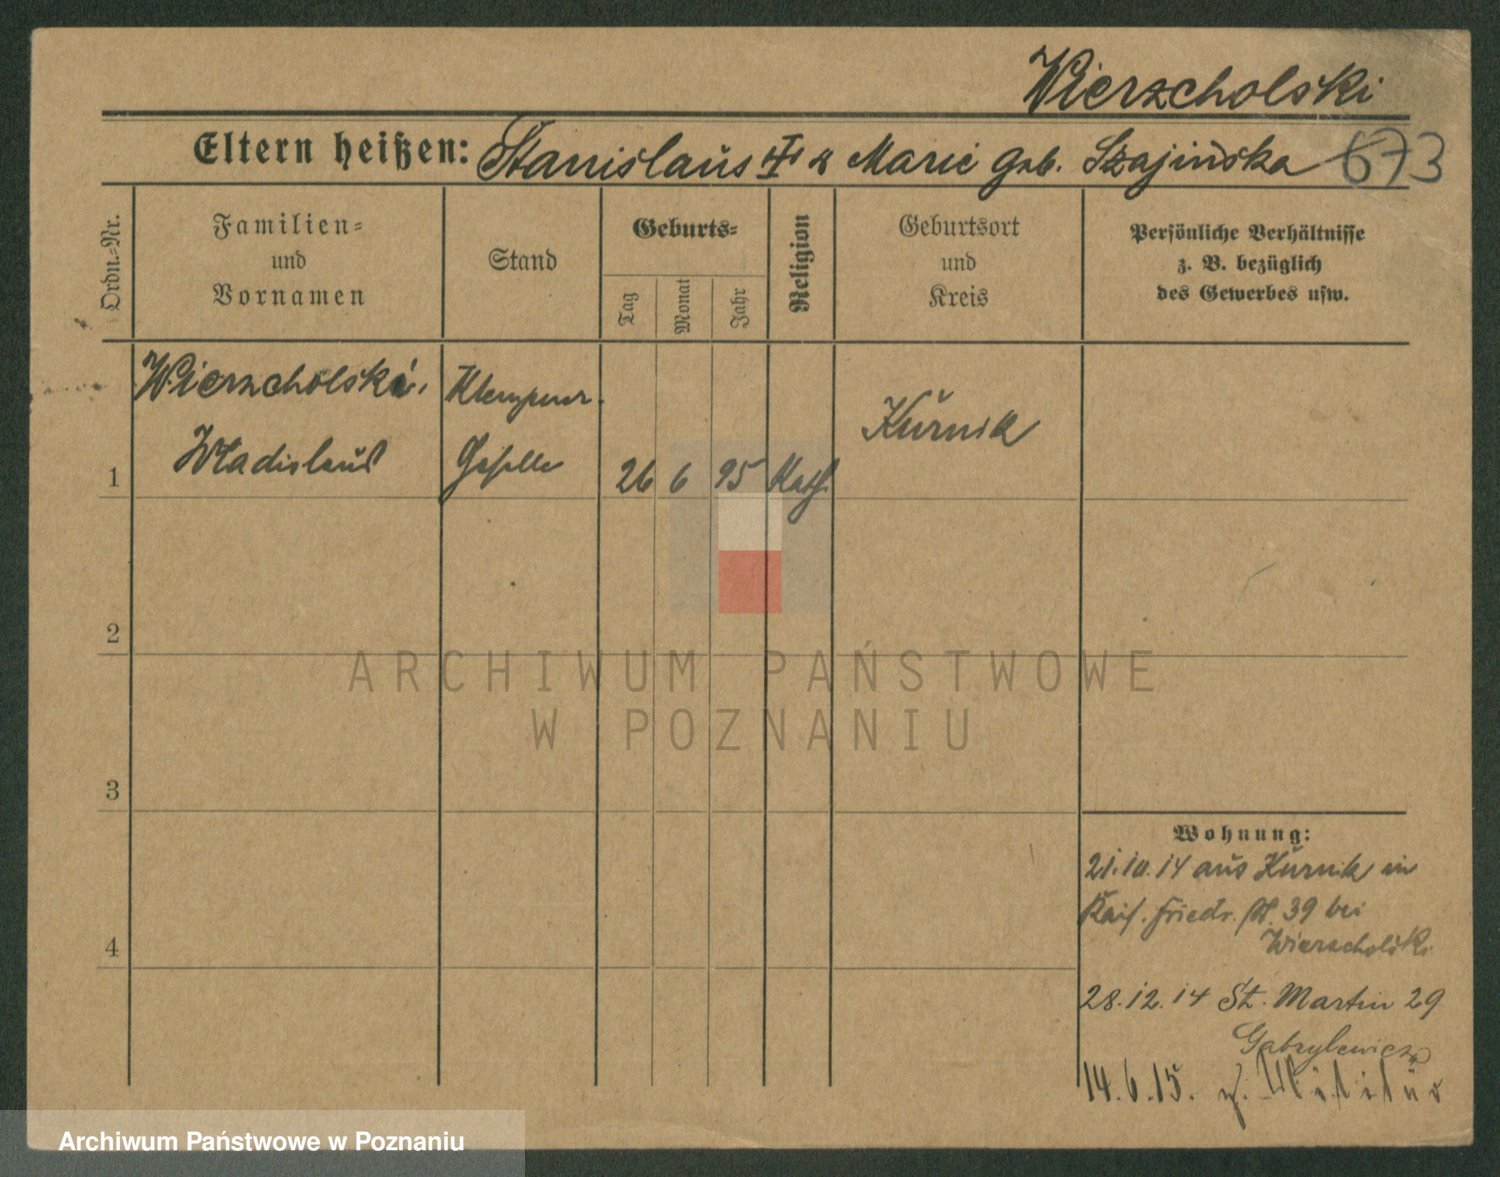 Wierzcholski
Eltern heißen: Stanislaus † & Marie geb. Szajińska 673
Ordn.-Nr.
Familien=
und
Vornamen
Stand
Geburts=
Tag
Monat
Jahr
Religion
Geburtsort
und
Kreis
Persönliche Verhältnisse
z. B. bezüglich
des Gewerbes usw.
1
Wierzcholski,
Wladislaus
Klempner.
Geselle
26 6 95 Kath.
Kurnik
2
3
4
Wohnung:
21.10.14 aus Kurnik in
Kais. Friedr. St. 39 bei
Wierzcholski
28.12.14 St. Martin 29
Gabrylewicz
14.6.15. z. Militär
ARCHIWUM PAŃSTWOWE
W POZNANIU
Archiwum Państwowe w Poznaniu